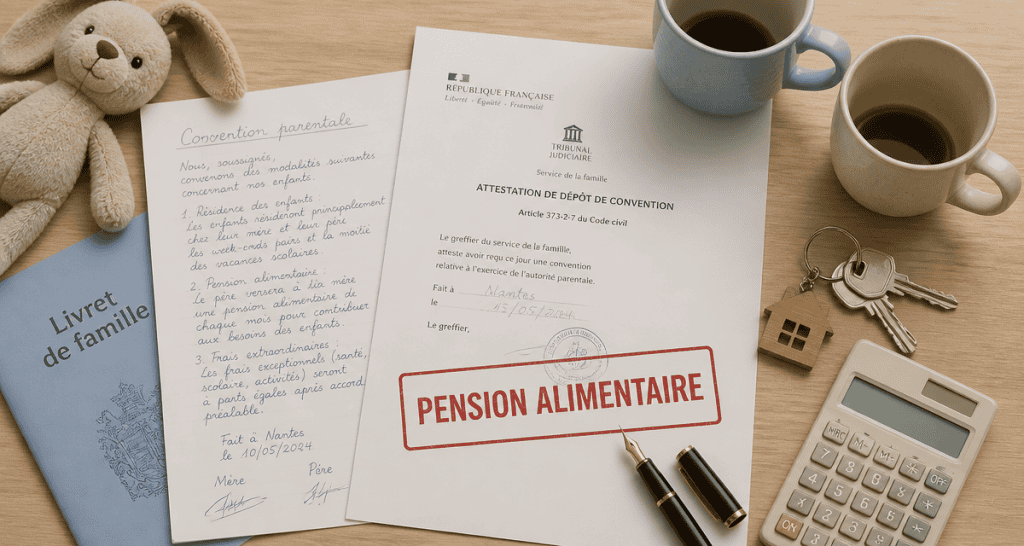 Livret
de famille
Convention parentale
Nous, soussignés,
convenons des modalités suivantes
concernant nos enfants.
1. Résidence des enfants :
Les enfants résideront principalement
chez leur mère et leur père
les week-ends pairs et la moitié
des vacances scolaires.
2. Pension alimentaire :
Le père versera à la mère
une pension alimentaire de
chaque mois pour contribuer
aux besoins des enfants.
3. Frais extraordinaires :
Les frais exceptionnels (santé,
scolaire, activités) seront
à parts égales après accord
préalable.
Fait à Nantes
le 10/05/2024
Mère Père
RÉPUBLIQUE FRANÇAISE
Liberté · Égalité · Fraternité
TRIBUNAL
JUDICIAIRE
Service de la famille
ATTESTATION DE DÉPÔT DE CONVENTION
Article 373-2-7 du Code civil
Le greffier du service de la famille,
atteste avoir reçu ce jour une convention
relative à l'exercice de l'autorité parentale.
Fait à Nantes
le 15/05/2024
Le greffier,
PENSION ALIMENTAIRE
MRC M- M+ OFF
7 8
4 5
1 2
ON 0